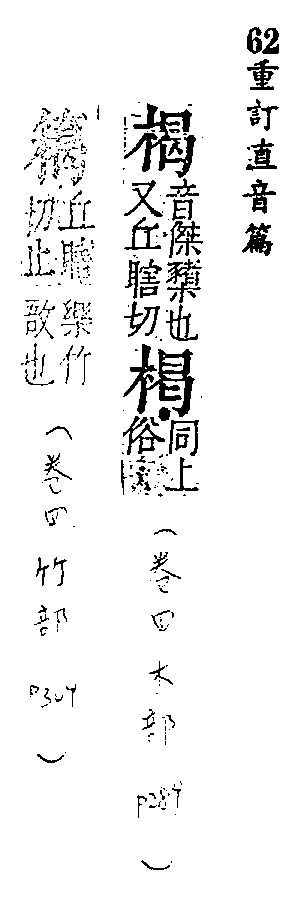 62重訂直音篇
楬音傑櫫也又丘瞎切楬同上俗
(巻四木部 P289)
丘瞎切止樂竹敔也
(巻四竹部 P304)